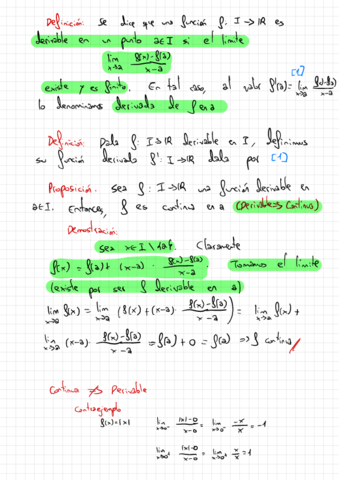 Definición: Se dice que una función f: I→IR es
derivable en un punto a∈I si el límite
lim x→a f(x)-f(a) / x-a
existe y es finito. En tal caso, al valor f'(a)= lim x→a f(x)-f(a) / x-a [1]
lo denominamos derivada de f en a
Definición: Dada f: I→IR derivable en I, definimos
su función derivada f': I→IR dada por [1]
Proposición: Sea f: I→IR una función derivable en
a∈I. Entonces, f es continua en a (Derivable⇒Continua)
Demostración:
Sea x∈I\{a}. Claramente
f(x) = f(a) + (x-a) · f(x)-f(a) / x-a . Tomamos el límite
(existe por ser f derivable en a)
lim x→a f(x) = lim x→a (f(x) + (x-a) · f(x)-f(a) / x-a) = lim x→a f(x) +
lim x→a (x-a) · f(x)-f(a) / x-a = f(a) + 0 = f(a) ⇒ f continua
Continua ⇏ Derivable
Contraejemplo
f(x)=|x| lim x→0⁻ |x|-0 / x-0 = lim x→0⁻ -x/x = -1
lim x→0⁺ |x|-0 / x-0 = lim x→0⁺ x/x = 1